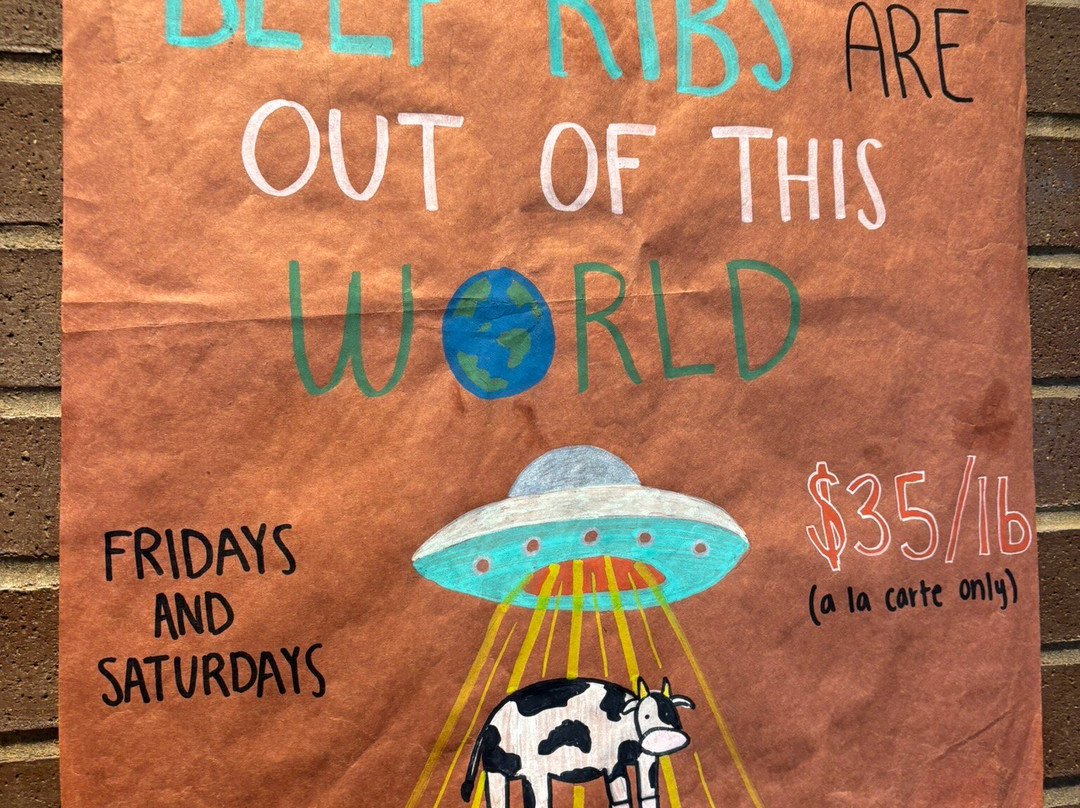 BEEF RIBS ARE
OUT OF THIS
WORLD
FRIDAYS
AND
SATURDAYS
$35/lb
(a la carte only)